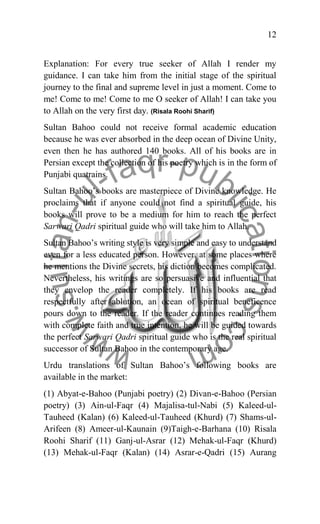 12
Explanation: For every true seeker of Allah I render my
guidance. I can take him from the initial stage of the spiritual
journey to the final and supreme level in just a moment. Come to
me! Come to me! Come to me O seeker of Allah! I can take you
to Allah on the very first day. (Risala Roohi Sharif)
Sultan Bahoo could not receive formal academic education
because he was ever absorbed in the deep ocean of Divine Unity,
even then he has authored 140 books. All of his books are in
Persian except the collection of his poetry which is in the form of
Punjabi quatrains.
Sultan Bahoo's books are masterpiece of Divine knowledge. He
proclaims that if anyone could not find a spiritual guide, his
books will prove to be a medium for him to reach the perfect
Sarwari Qadri spiritual guide who will take him to Allah.
Sultan Bahoo's writing style is very simple and easy to understand
even for a less educated person. However, at some places where
he mentions the Divine secrets, his diction becomes complicated.
Nevertheless, his writings are so persuasive and influential that
they envelop the reader completely. If his books are read
respectfully after ablution, an ocean of spiritual beneficence
pours down to the reader. If the reader continues reading them
with complete faith and true intention, he will be guided towards
the perfect Sarwari Qadri spiritual guide who is the real spiritual
successor of Sultan Bahoo in the contemporary age.
Urdu translations of Sultan Bahoo's following books are
available in the market:
(1) Abyat-e-Bahoo (Punjabi poetry) (2) Divan-e-Bahoo (Persian
poetry) (3) Ain-ul-Faqr (4) Majalisa-tul-Nabi (5) Kaleed-ul-
Tauheed (Kalan) (6) Kaleed-ul-Tauheed (Khurd) (7) Shams-ul-
Arifeen (8) Ameer-ul-Kaunain (9)Taigh-e-Barhana (10) Risala
Roohi Sharif (11) Ganj-ul-Asrar (12) Mehak-ul-Faqr (Khurd)
(13) Mehak-ul-Faqr (Kalan) (14) Asrar-e-Qadri (15) Aurang